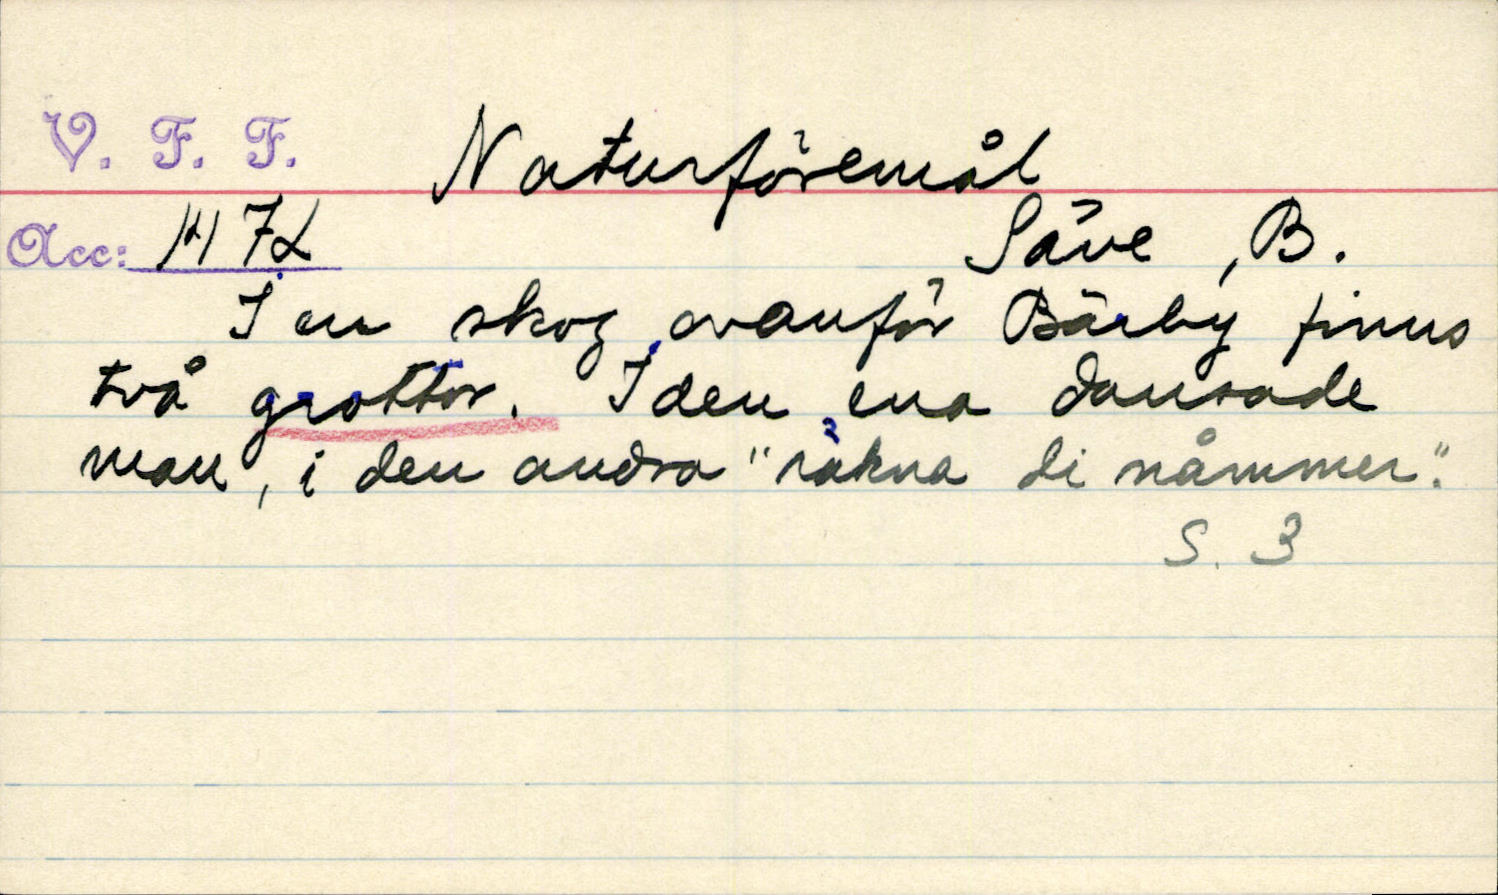 V. F. F.
Naturföremål
Acc: 1472
Säve, B.
I en skog ovanför Bärby finns
två grottor. I den ena dansade
man, i den andra "räkna di nåmmer".
S. 3